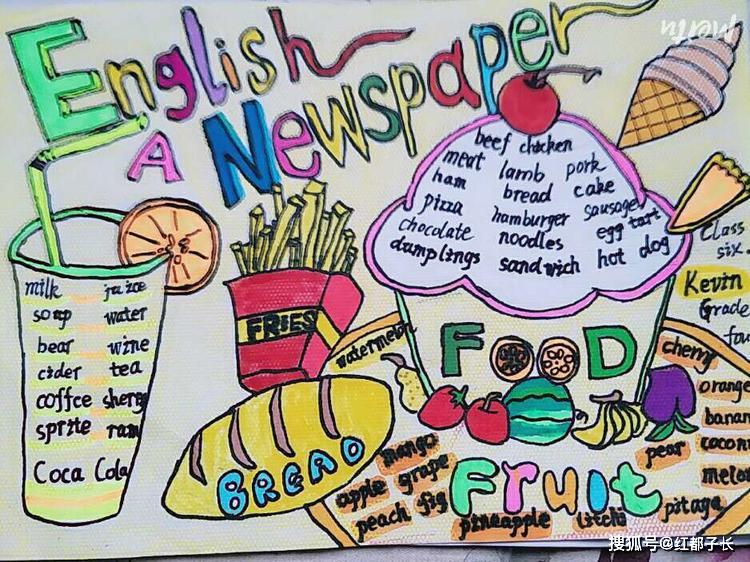 English
A Newspaper
beef chicken
meat lamb pork
ham bread cake
pizza hamburger sausage
chocolate noodles egg tart
dumplings sandwich hot dog
Class
six.
Kevin
Grade
milk juice
soap water
bear wine
cider tea
coffce sherry
sprite
Coca Cola
FRIES
BREAD
FOOD
watermelon
cherry
orange
banan
coconu
pear
melon
pitaya
mango
apple grape
peach fig
pineapple litchi
Fruit
搜狐号@红都子长